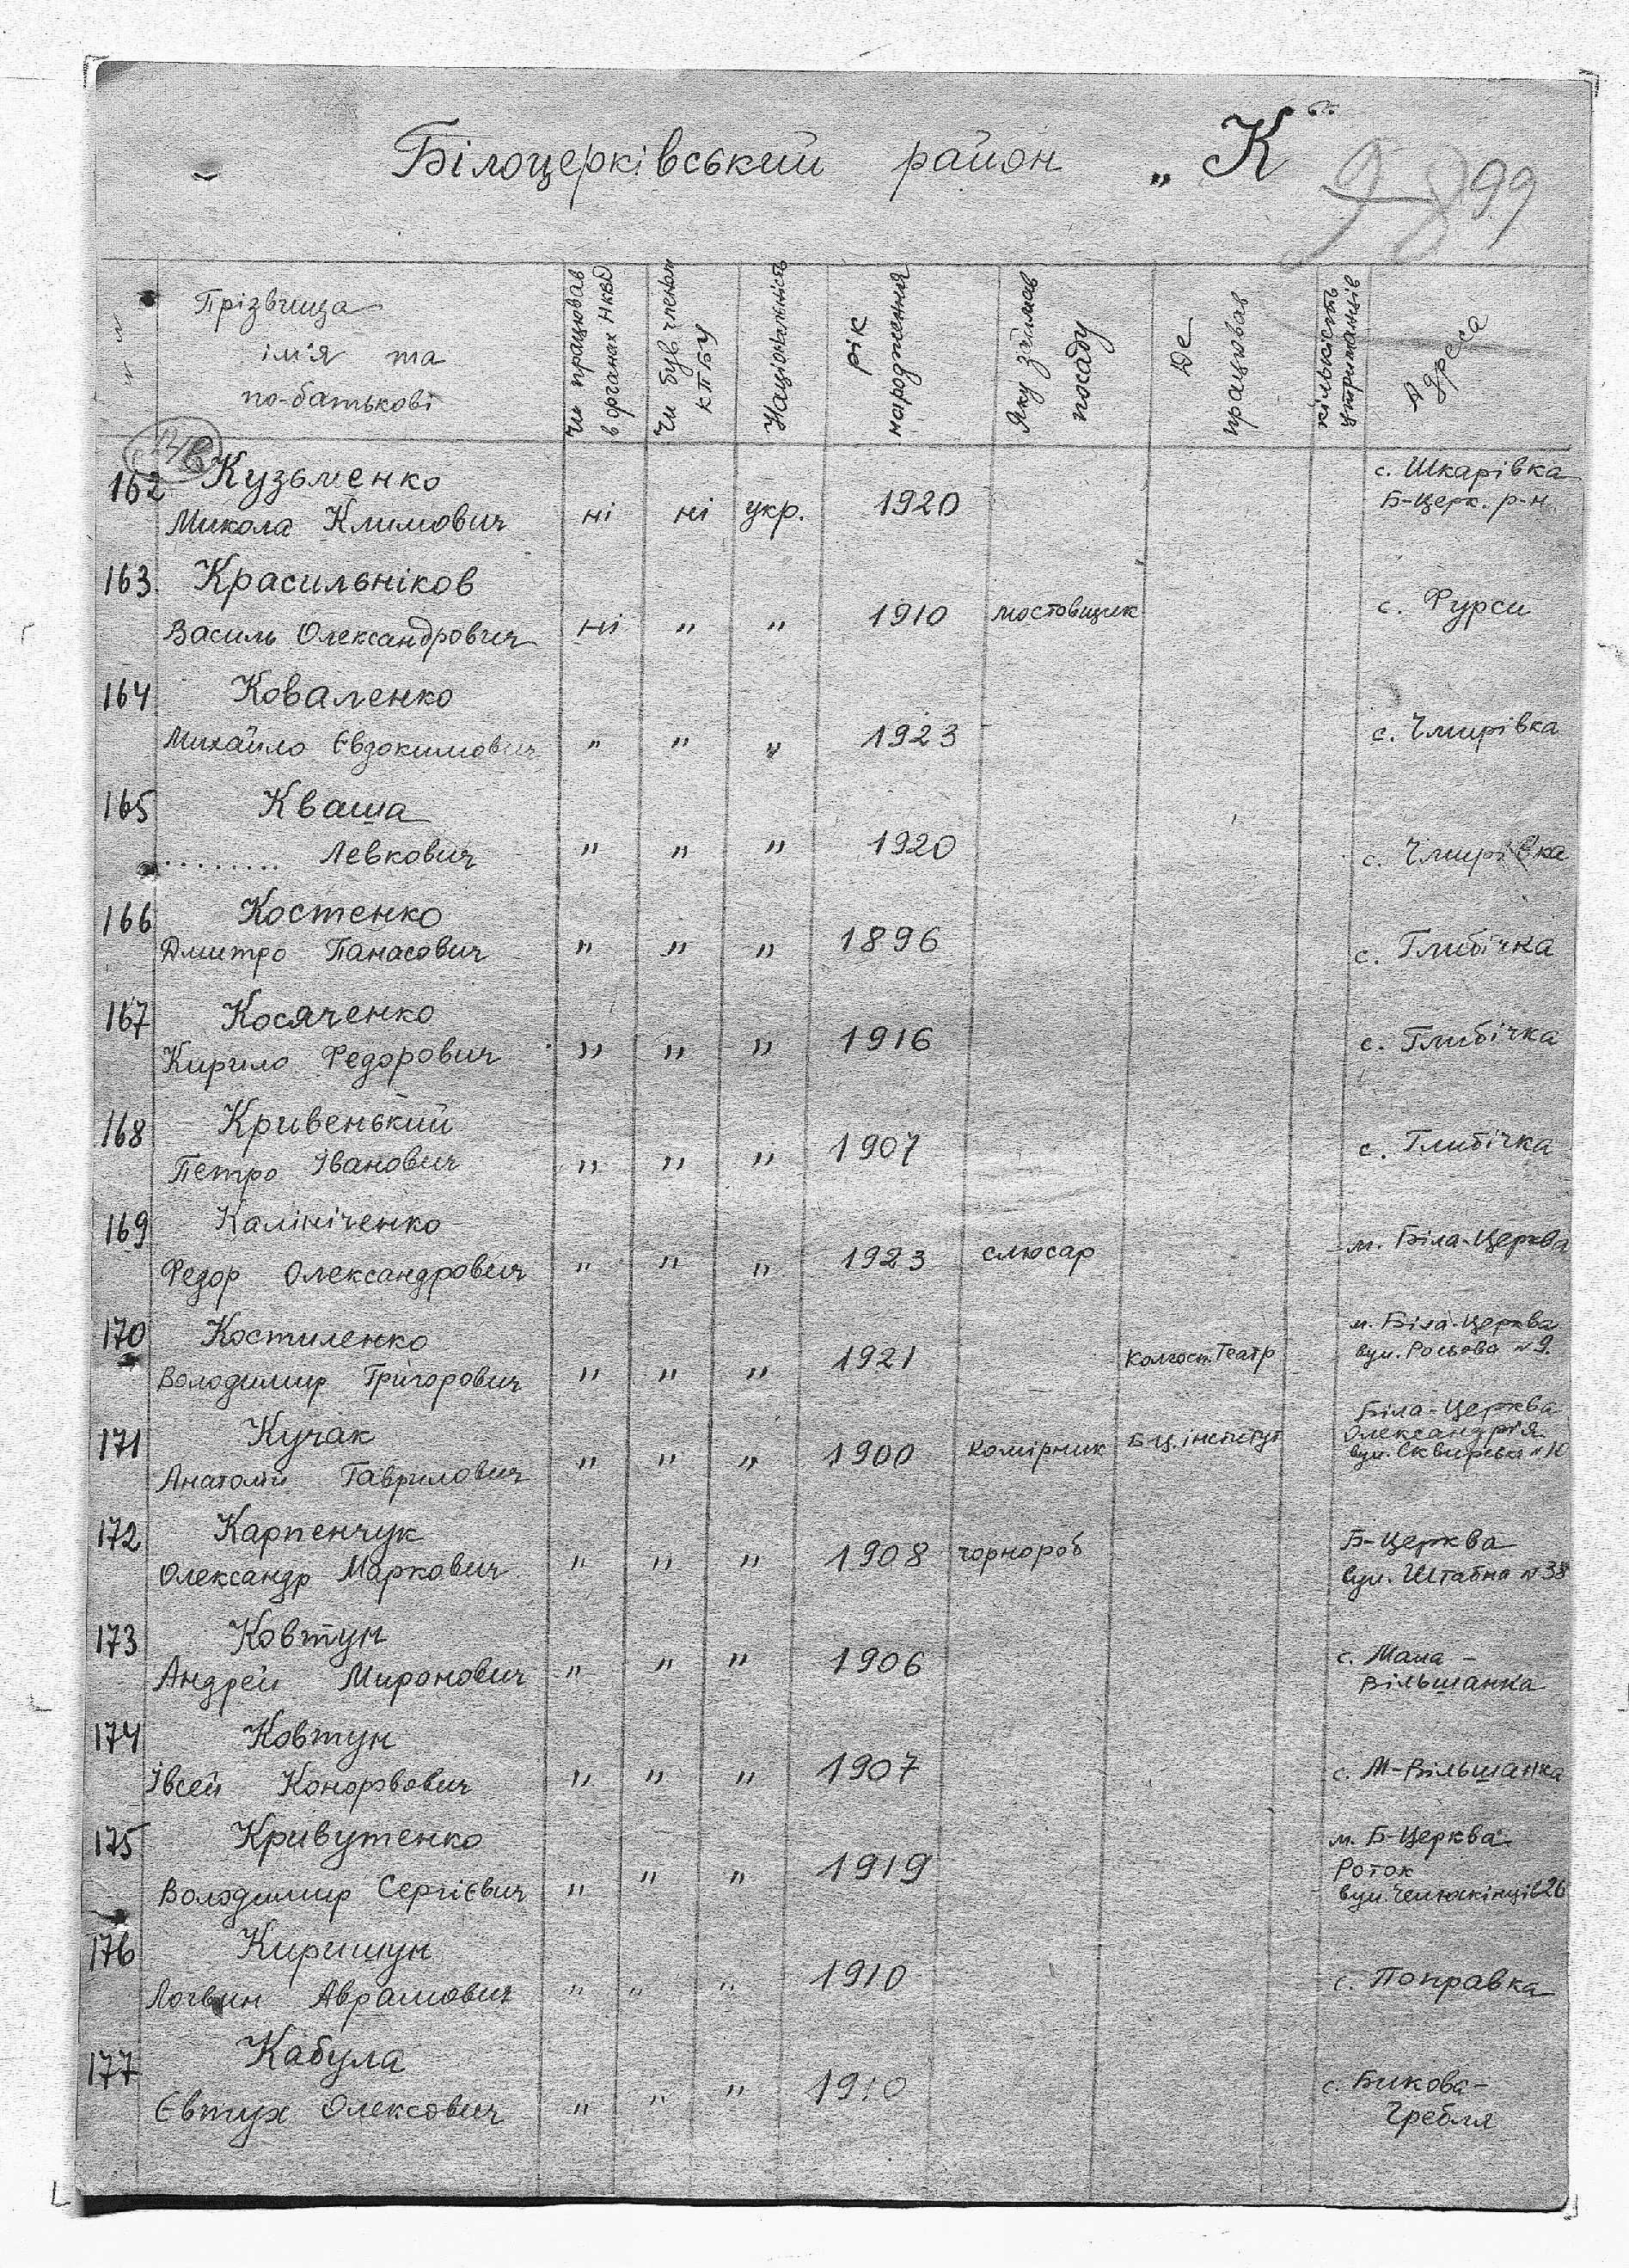 Білоцерківський район „К“
99
Прізвища
ім'я та
по-батькові
Чи працював
в органах НКВД
Чи був членом
КПБУ
Національність
рік
народження
Яку займав
посаду
Де
працював
кількість
утриманців
Адреса
162 Кузьменко с. Шкарівка
Микола Климович ні ні укр. 1920 Б-Церк. р-н.
163. Красильніков
Василь Олександрович ні " " 1910 мостовщик с. Фурси
164 Коваленко
Михайло Євдокимович " " " 1923 с. Чмирівка
165 Кваша
......... Левкович " " " 1920 с. Чмирівка
166 Костенко
Дмитро Панасович " " " 1896 с. Глибічка
167 Косяченко
Кирило Федорович " " " 1916 с. Глибічка
168 Кривенький
Петро Іванович " " " 1907 с. Глибічка
169 Калініченко
Федор Олександрович " " " 1923 слюсар м. Біла-Церква
170 Костиленко м. Біла-Церква
Володимир Григорович " " " 1921 Колгосп. Театр вул. Росьова №9.
171 Кучак Біла-Церква
Олександрія
Анатолій Гаврилович " " " 1900 комірник Б-Ц. інститут вул. Сквирська №10
172 Карпенчук Б-Церква
Олександр Маркович " " " 1908 чорнороб вул. Штабна №38
173 Ковтун с. Мала-
Андрей Миронович " " " 1906 Вільшанка
174 Ковтун
Івсей Конорвович " " " 1907 с. М-Вільшанка
175 Кривутенко м. Б-Церква
Роток
Володимир Сергієвич " " " 1919 вул. Челюскінців 26
176 Киришун
Логвин Аврамович " " " 1910 с. Поправка
177 Кабула с. Бикова-
Євтух Олексович " " " Гребля